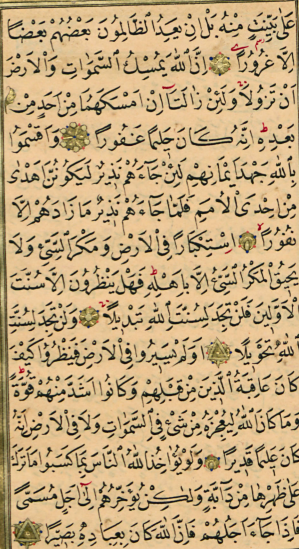 عَلٰى بَيِّنَتٍ مِنْهُ بَلْ اِنْ يَعِدُ الظَّالِمُونَ بَعْضُهُمْ بَعْضًا
اِلَّا غُرُورًا اِنَّ اللّٰهَ يُمْسِكُ السَّمٰوَاتِ وَالْاَرْضَ
اَنْ تَزُولَا وَلَئِنْ زَالَتَا اِنْ اَمْسَكَهُمَا مِنْ اَحَدٍ مِنْ
بَعْدِهِ اِنَّهُ كَانَ حَلِيمًا غَفُورًا وَاَقْسَمُوا
بِاللّٰهِ جَهْدَ اَيْمَانِهِمْ لَئِنْ جَاءَهُمْ نَذِيرٌ لَيَكُونُنَّ اَهْدٰى
مِنْ اِحْدَى الْاُمَمِ فَلَمَّا جَاءَهُمْ نَذِيرٌ مَا زَادَهُمْ اِلَّا
نُفُورًا اِسْتِكْبَارًا فِي الْاَرْضِ وَمَكْرَ السَّيِّئِ وَلَا
يَحِيقُ الْمَكْرُ السَّيِّئُ اِلَّا بِاَهْلِهِ فَهَلْ يَنْظُرُونَ اِلَّا سُنَّتَ
الْاَوَّلِينَ فَلَنْ تَجِدَ لِسُنَّتِ اللّٰهِ تَبْدِيلًا وَلَنْ تَجِدَ لِسُنَّتِ
اللّٰهِ تَحْوِيلًا اَوَلَمْ يَسِيرُوا فِي الْاَرْضِ فَيَنْظُرُوا كَيْفَ
كَانَ عَاقِبَةُ الَّذِينَ مِنْ قَبْلِهِمْ وَكَانُوا اَشَدَّ مِنْهُمْ قُوَّةً
وَمَا كَانَ اللّٰهُ لِيُعْجِزَهُ مِنْ شَيْءٍ فِي السَّمٰوَاتِ وَلَا فِي الْاَرْضِ اِنَّهُ
كَانَ عَلِيمًا قَدِيرًا وَلَوْ يُؤَاخِذُ اللّٰهُ النَّاسَ بِمَا كَسَبُوا مَا تَرَكَ
عَلٰى ظَهْرِهَا مِنْ دَابَّةٍ وَلٰكِنْ يُؤَخِّرُهُمْ اِلٰى اَجَلٍ مُسَمًّى
فَاِذَا جَاءَ اَجَلُهُمْ فَاِنَّ اللّٰهَ كَانَ بِعِبَادِهِ بَصِيرًا